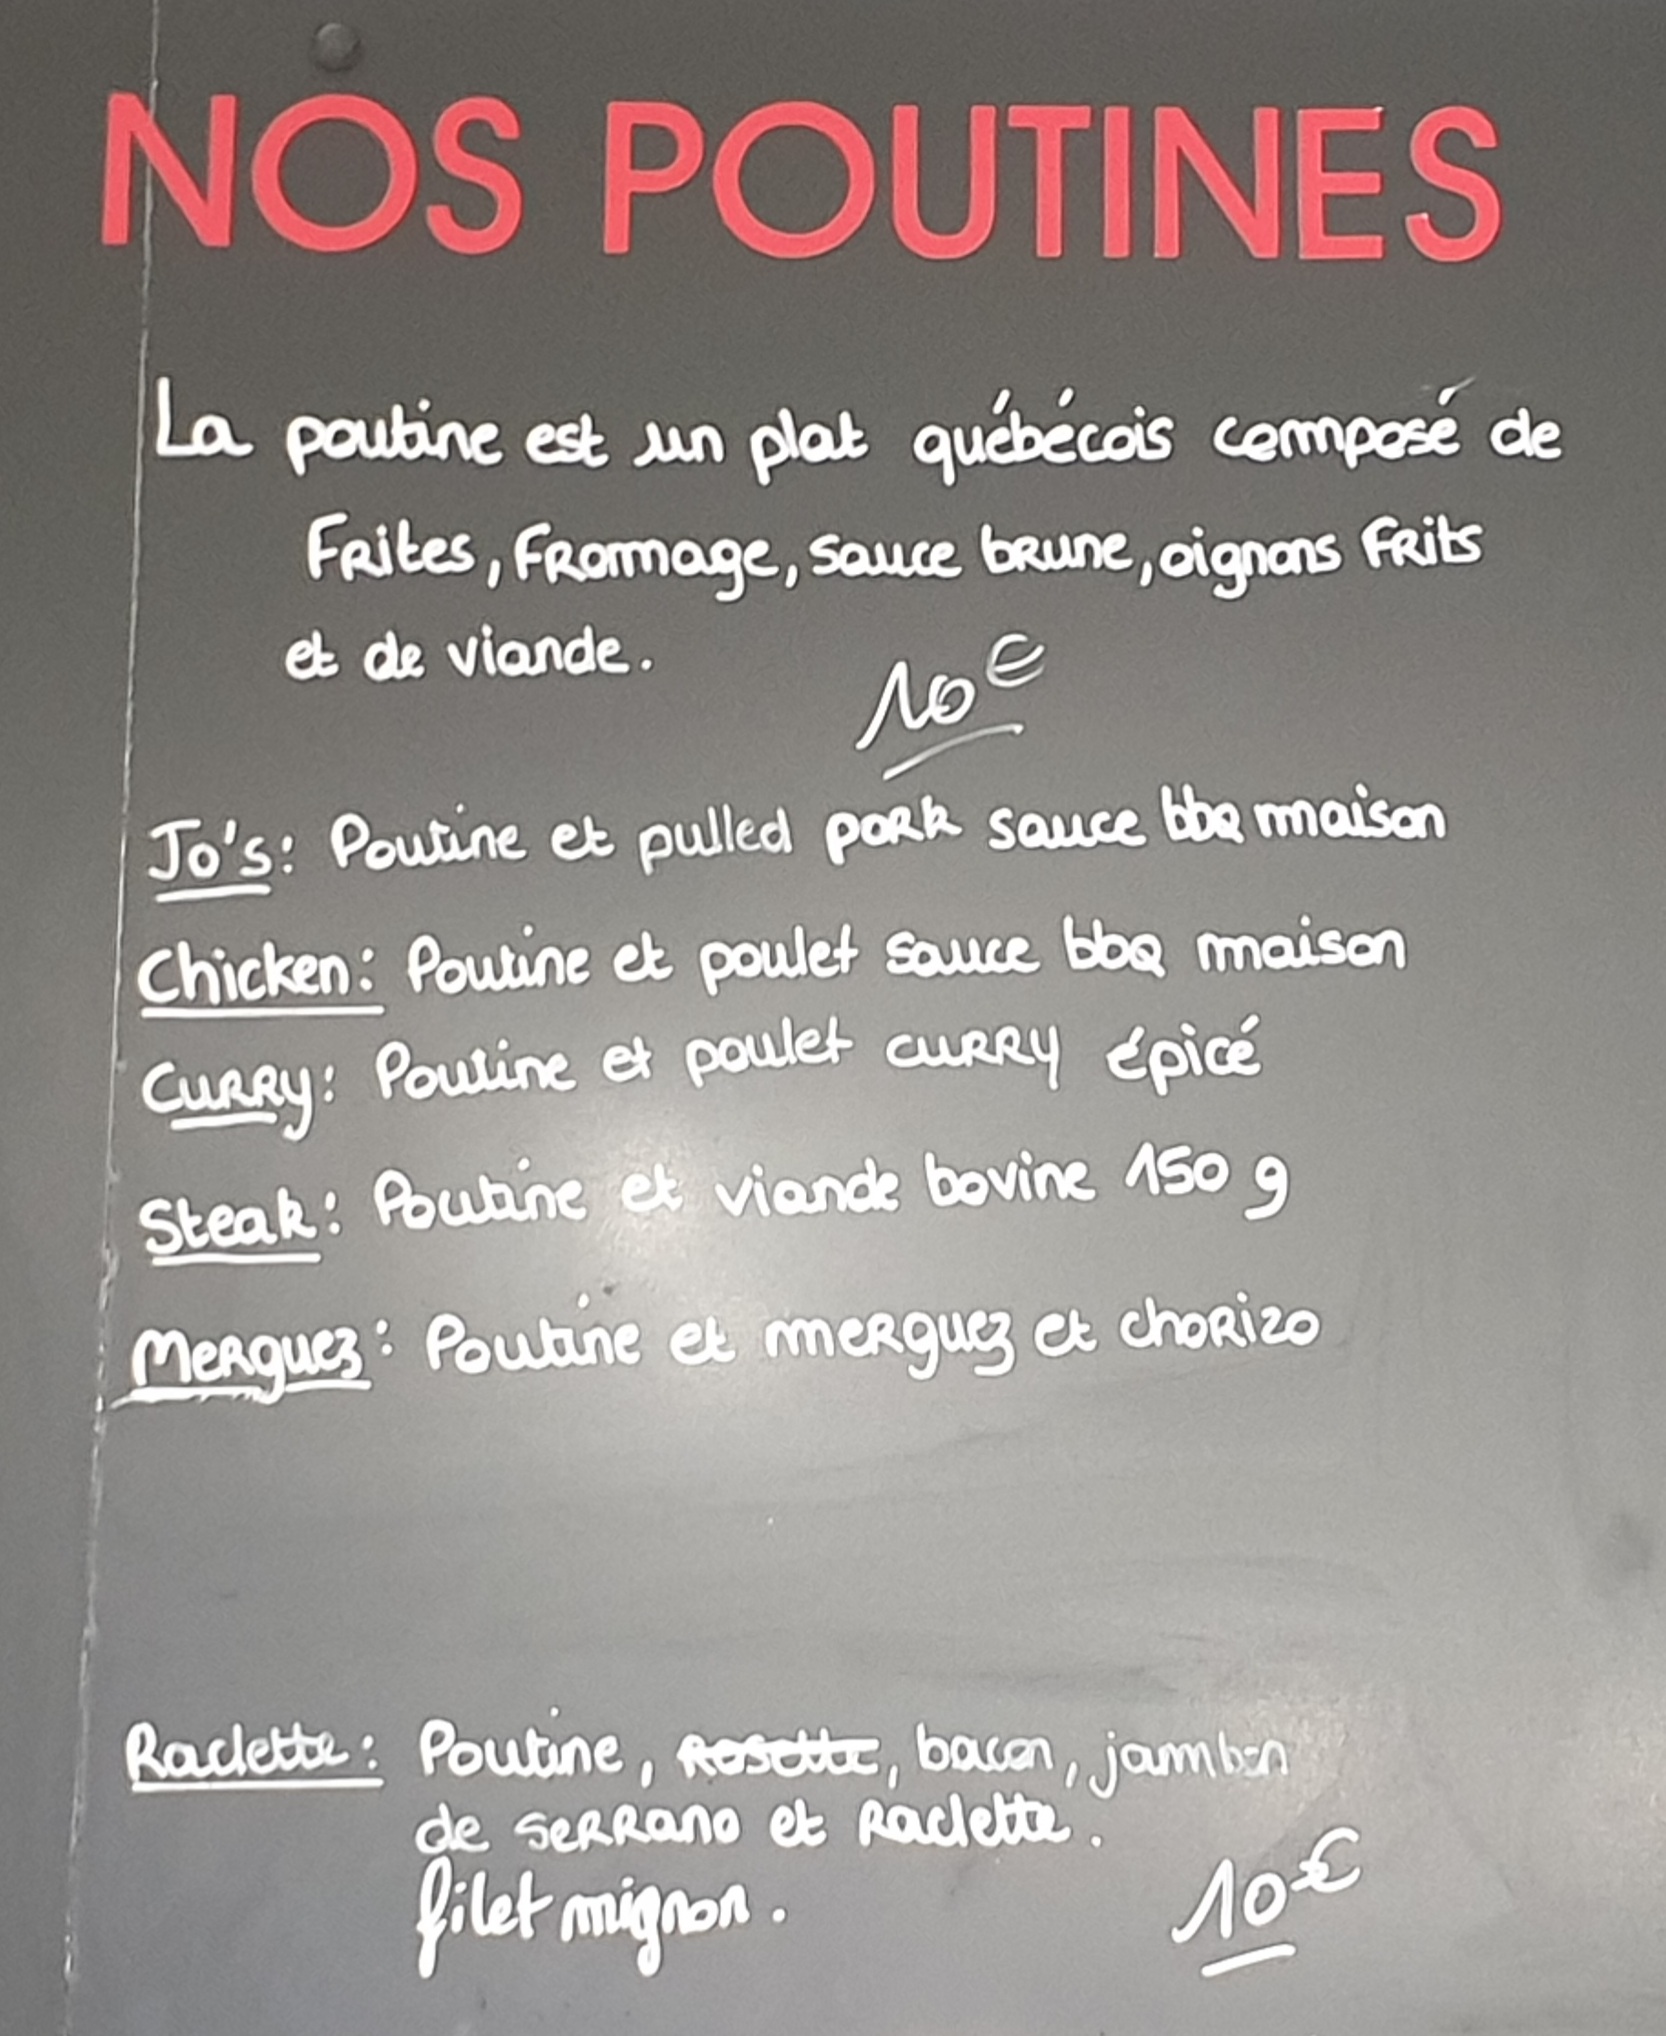 NOS POUTINES
La poutine est un plat québécois composé de
Frites, Fromage, sauce brune, oignons frits
et de viande.
10€
Jo's: Poutine et pulled pork sauce bbq maison
Chicken: Poutine et poulet sauce bbq maison
Curry: Poutine et poulet curry épicé
Steak: Poutine et viande bovine 150 g
Merguez: Poutine et merguez et chorizo
Raclette: Poutine, Rosette, bacon, jambon
de serrano et Raclette.
filet mignon.
10€